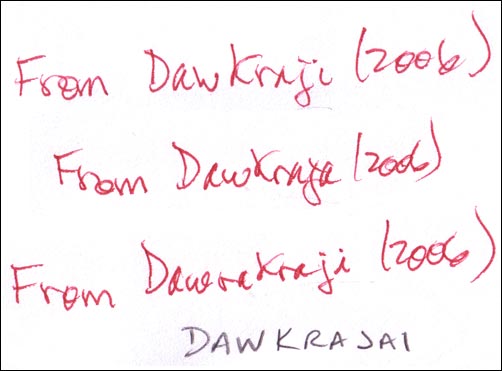 From Dawkraji (2006)
From Dawkraja (2006)
From Dawrakraji (2006)
DAWKRAJAI